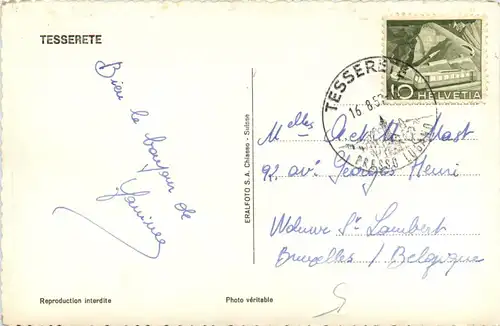 TESSERETE
Bien le bonjour de
10
HELVETIA
TESSERETE
16.8.5
PRESSO LUGANO
Melles A. Mast
92, av. Georges Henri
Woluwe St Lambert
Bruxelles / Belgique
ERALFOTO S. A. Chiasso - Suisse
Reproduction interdite
Photo véritable